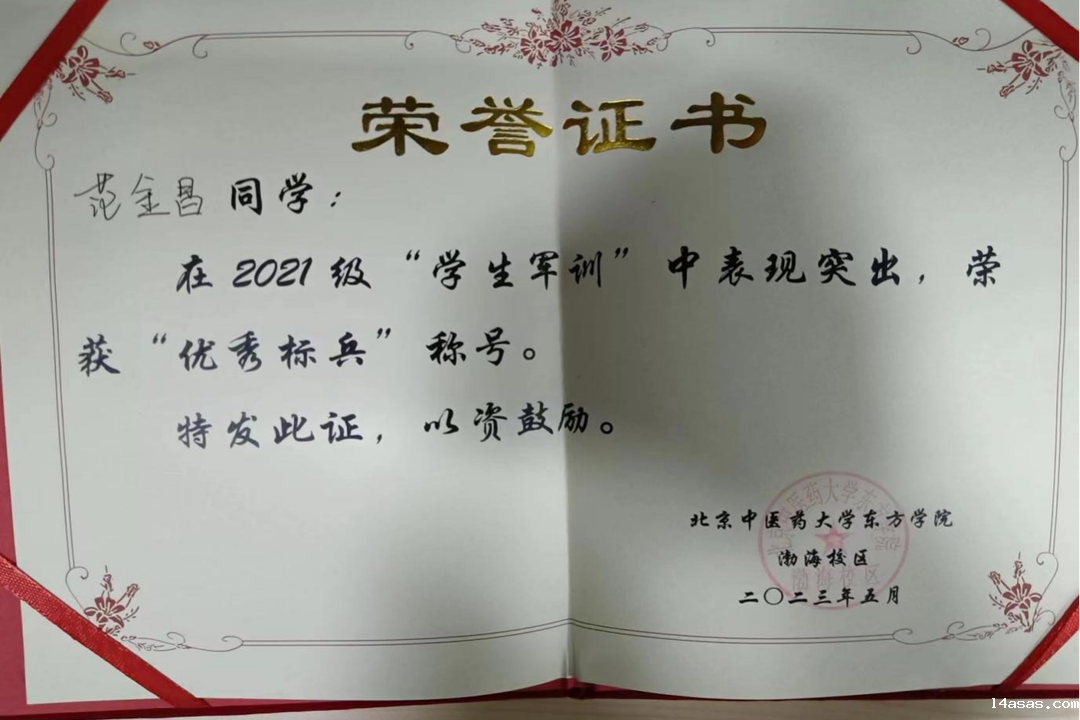 荣誉证书
范金昌同学：
在2021级“学生军训”中表现突出，荣
获“优秀标兵”称号。
特发此证，以资鼓励。
北京中医药大学东方学院
渤海校区
二〇二三年五月
14asas.com